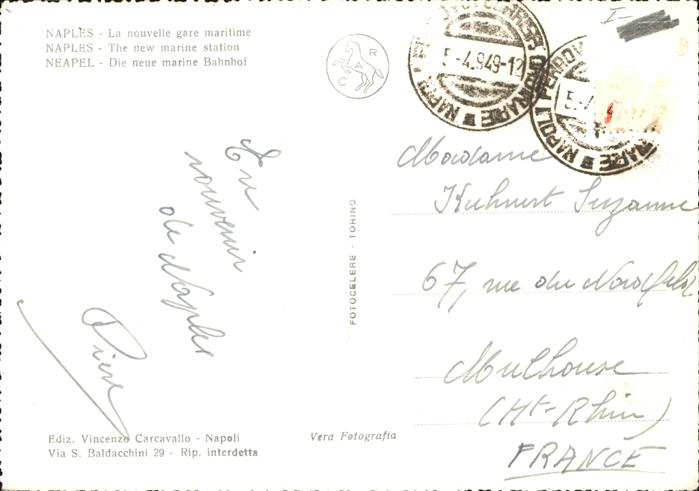 NAPLES - La nouvelle gare maritime
NAPLES - The new marine station
NEAPEL - Die neue marine Bahnhof
C A R
5-4.949-12
NAPOLI FERROV ORDINARIE
5-4
NAPOLI FERROV
I-
En
souvenir
de Naples
Pierre
FOTOCELERE - TORINO
Madame
Kuhnert Suzanne
67, rue du Nordfeld
Mulhouse
(Ht-Rhin)
FRANCE
Ediz. Vincenzo Carcavallo - Napoli
Via S. Baldacchini 29 - Rip. interdetta
Vera Fotografia